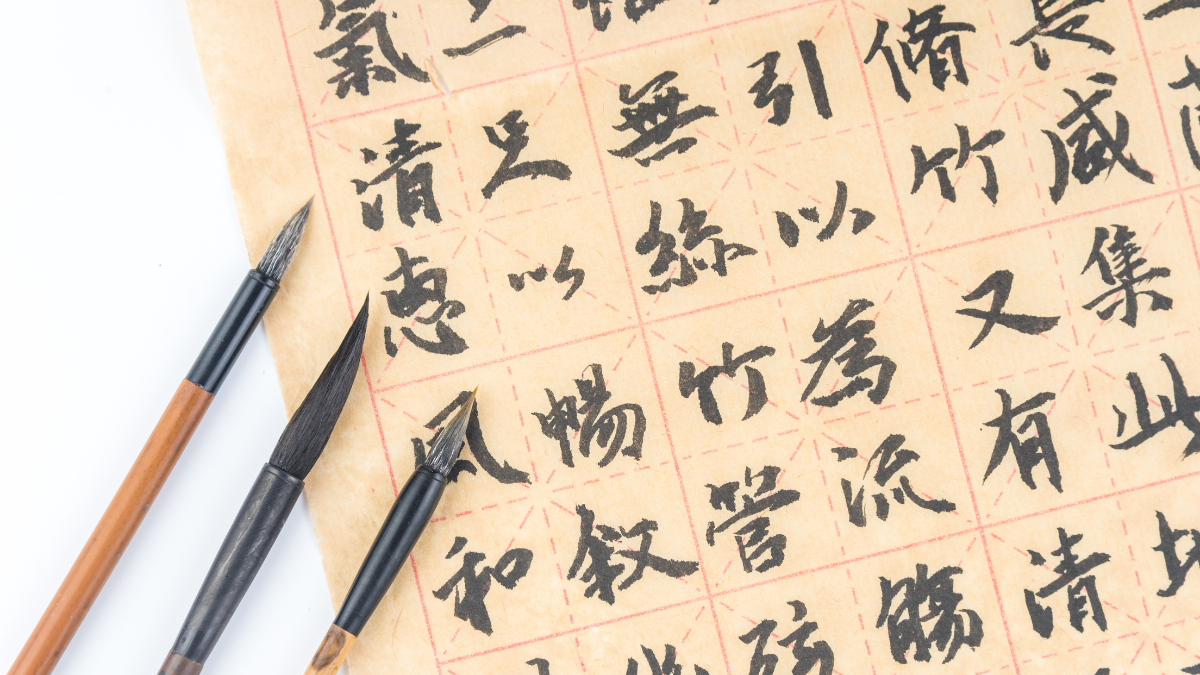 咸集此
脩竹又有清
引以為流觴
無絲竹管弦
足以暢敘
氣清惠風和